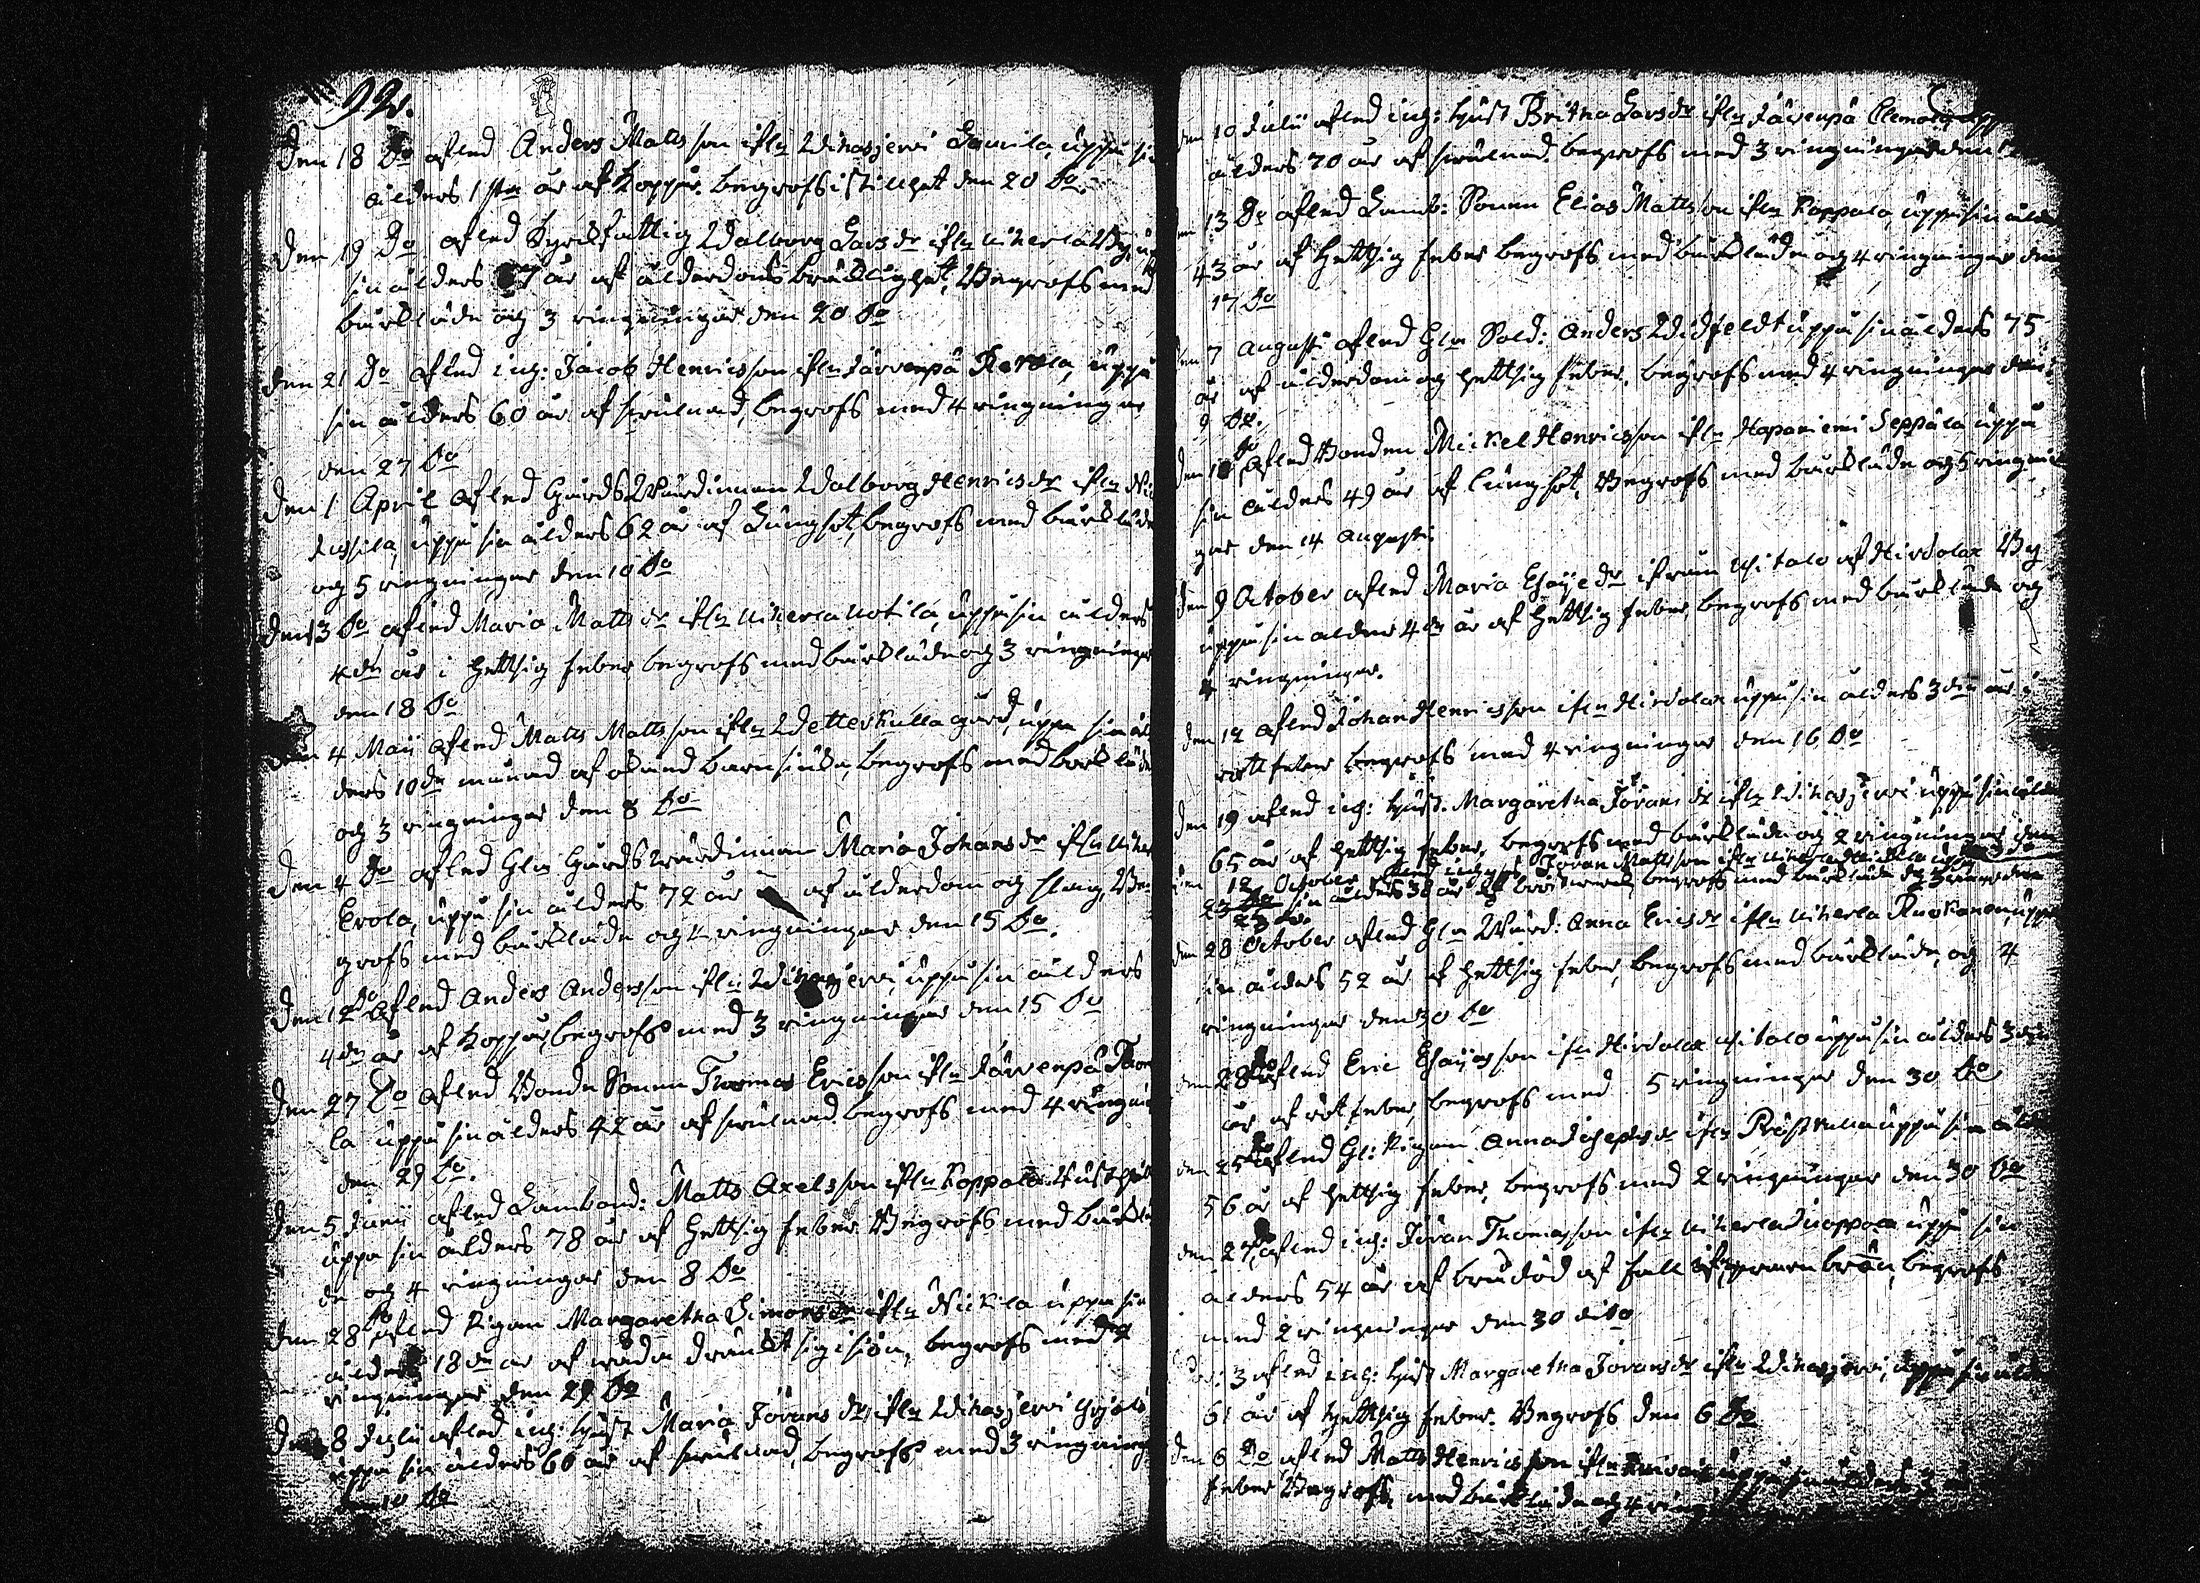 92.
Den 18 Do afled Anders Matts son ifrn Wihasjerwi Gamila, uppå sin
ålders 1sta år af Koppor, begrofs i stillhet den 20 Do.
Den 19 Do afled Kyrkfattig Walborg Lars dr ifrn Uikerla By, up
sin ålders 7 år af ålderdoms bräcklighet, Begrofs med
bårkläde og 3 ringningar den 20 Do
Den 21 Do afled inh: Jacob Henricsson ifrn Järvenpä Kerola, uppå
sin ålders 60 år af swulnad, begrofs med 4 ringningar
den 27 Do
Den 1 April afled Gårds Wärdinnan Walborg Henrics dr ifrn
Jussila, uppå sin ålders 62 år af Lungsot, begrofs med bårkläde
og 5 ringningar den 10 Do
Den 3 Do afled Maria Matts dr ifrn Uikerla Uotila, uppå sin ålders
4de år i hettsig feber begrofs med bårkläde og 3 ringningar
den 18 Do
4 Maij afled Matts Matts son ifrn Wetterkulla gård, uppå sin ål
ders 10de månad af okänd barnsiuka, begrofs med barkläde
og 3 ringningar den 8 Do
Den 4 Do afled Gln Gårds wärdinnan Maria Johans dr ifrn Uiker
Erola, uppå sin ålders 72 år af ålderdom og slag, Be
grofs med bårkläde og 4 ringningar den 15 Do.
Den 12 Do afled Anders Andersson ifrn Wihasjerwi, uppå sin ålders
4de år af Koppor, begrofs med 3 ringningar den 15 Do
Den 27 Do afled Bonde Sonen Thomas Ericsson ifrn Järvenpä Thom
la uppå sin ålders 42 år af swulnad begrofs med 4 ringni
den 29 Do.
Den 5 Junii afled Lambond: Matts Axelsson ifrn Koppala
uppå sin ålders 78 år af hettsig feber Begrofs med bårklä
de og 4 ringningar den 8 Do
Den 28 Do afled Pigan Margaretha Simons dr ifrn Nickila uppå sin
ålders 18de år af wåda dränckt sig i siön, begrofs med 2
ringningar den 29 Do
Den 8 Julii afled inh: hust Maria Jörans dr ifrn Wihasjerwi
uppå sin ålders 66 år af swulnad, begrofs med 3 ringning
den 10 Do
den 10 Julii afled inh: hust Britha Lars dr ifrn Järvenpä Clemola upp
ålders 70 år af swulnad, begrofs med 3 ringningar den
13 Do afled Lamb: Sonen Elias Mattsson ifrn Koppala, uppå sin ålde
43 år af hettsig feber begrofs med bårkläde og 4 ringningar den
17 Do
den 7 Augusti afled Gln Sold: Anders Widfeldt uppå sin ålders 75
år af ålderdom og hettsig feber, begrofs med 4 ringningar den
9 Do.
den Do afled Bonden Mickel Henricsson ifrn Haponiemi Seppälä uppå
sin ålders 49 år af lungsot, Begrofs med bårkläde og 5 ringnin
gar den 14 Augusti.
den 9 October afled Maria Esaije dr ifrån Ylitalo af Hirdolax By
uppå sin ålders 4de år af hettsig feber, begrofs med bårkläde og
4 ringningar.
den 12 afled Johan Henricsson ifrn Hirdolax uppå sin ålders 3die år i
rött feber begrofs med 4 ringningar den 16 Do
den 19 afled inh: hust. Margaretha Jörans dr ifrn Wihasjerwi uppå sin ålde
65 år af hettsig feber, begrofs med bårkläde og 2 ringningar den
den 12 October afled Jöran Mattsson ifrn Uikerla
23 Do sin ålders 38 år af begrofs med bårkläde og 3
25 Do.
den 28 October afled Gln Wärd: Anna Erics dr ifrn Uikerla Ruokonen, uppå
sin ålders 52 år af hettsig feber, begrofs med bårkläde, og 4
ringningar den 30 Do
den 28 Do afled Eric Esaijas son ifrn Hirdolax Ylitalo uppå sin ålders 3die
år af röt feber, begrofs med 5 ringningar den 30 Do
den 25 Do afled Gl: Pigan Anna Josephs dr ifrn Prästkulla uppå sin ålde
56 år af hettsig feber, begrofs med 2 ringningar den 30 Do
den 27 Do afled inh: Jöran Thomasson ifrn Uikerla Juoppola uppå sin
ålders 54 år af brådöd af fall ifrn qwarn brön, begrofs
med 2 ringningar den 30 dito
3 afled inh: hust Margaretha Jörans dr ifrn Wihasjerwi, uppå sin ålde
61 år af hettsig feber. Begrofs den 6 Do
den 6 Do afled Matts Henricsson ifrn uppå sin ålders 3
feber Begrofs med bårkläde og 4 ring